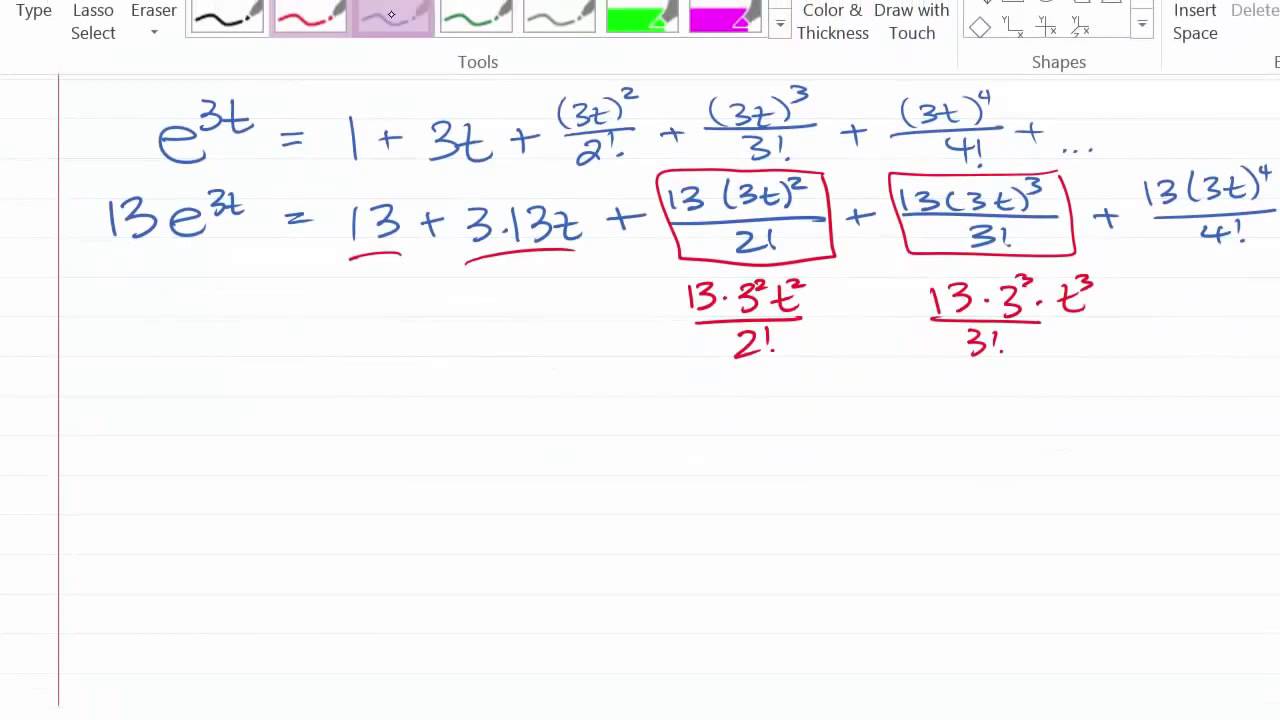 Type Lasso Select Eraser Color & Thickness Draw with Touch Insert Space Delete
Tools Shapes
e^{3t} = 1 + 3t + (3t)^2/2! + (3t)^3/3! + (3t)^4/4! + ...
13e^{3t} = 13 + 3.13t + 13(3t)^2/2! + 13(3t)^3/3! + 13(3t)^4/4!
13·3^2t^2/2! 13·3^3·t^3/3!